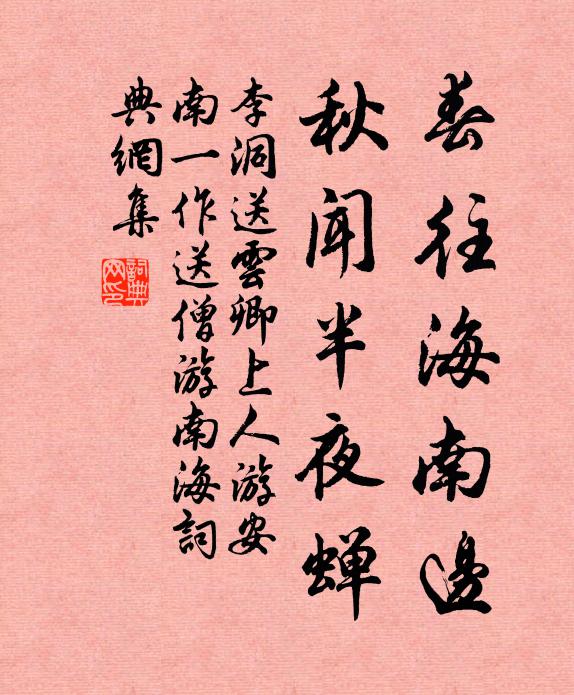 春往海南邊
秋聞半夜蟬
李洞送雲卿上人游安
南一作送僧游南海詞
典網集
詞典
网印